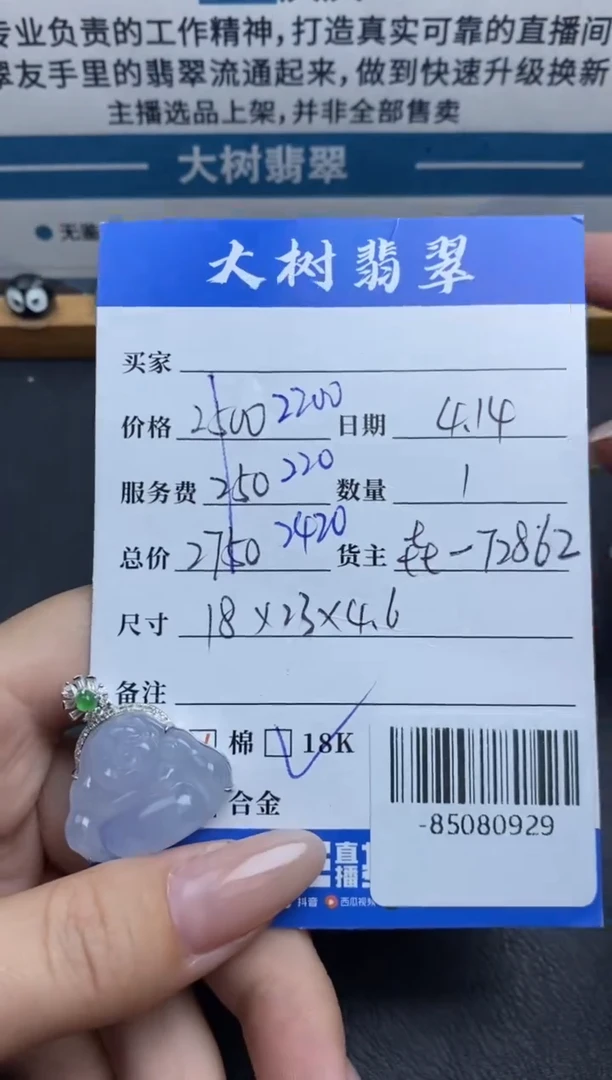 专业负责的工作精神，打造真实可靠的直播间
翠友手里的翡翠流通起来，做到快速升级换新
主播选品上架，并非全部售卖
大树翡翠
无
大树翡翠
买家
价格 2500 2200 日期 4.14
服务费 250 220 数量 1
总价 2750 2420 货主 -72862
尺寸 18×23×4.6
备注
棉 18K
合金
-85080929
直播
抖音 西瓜视频